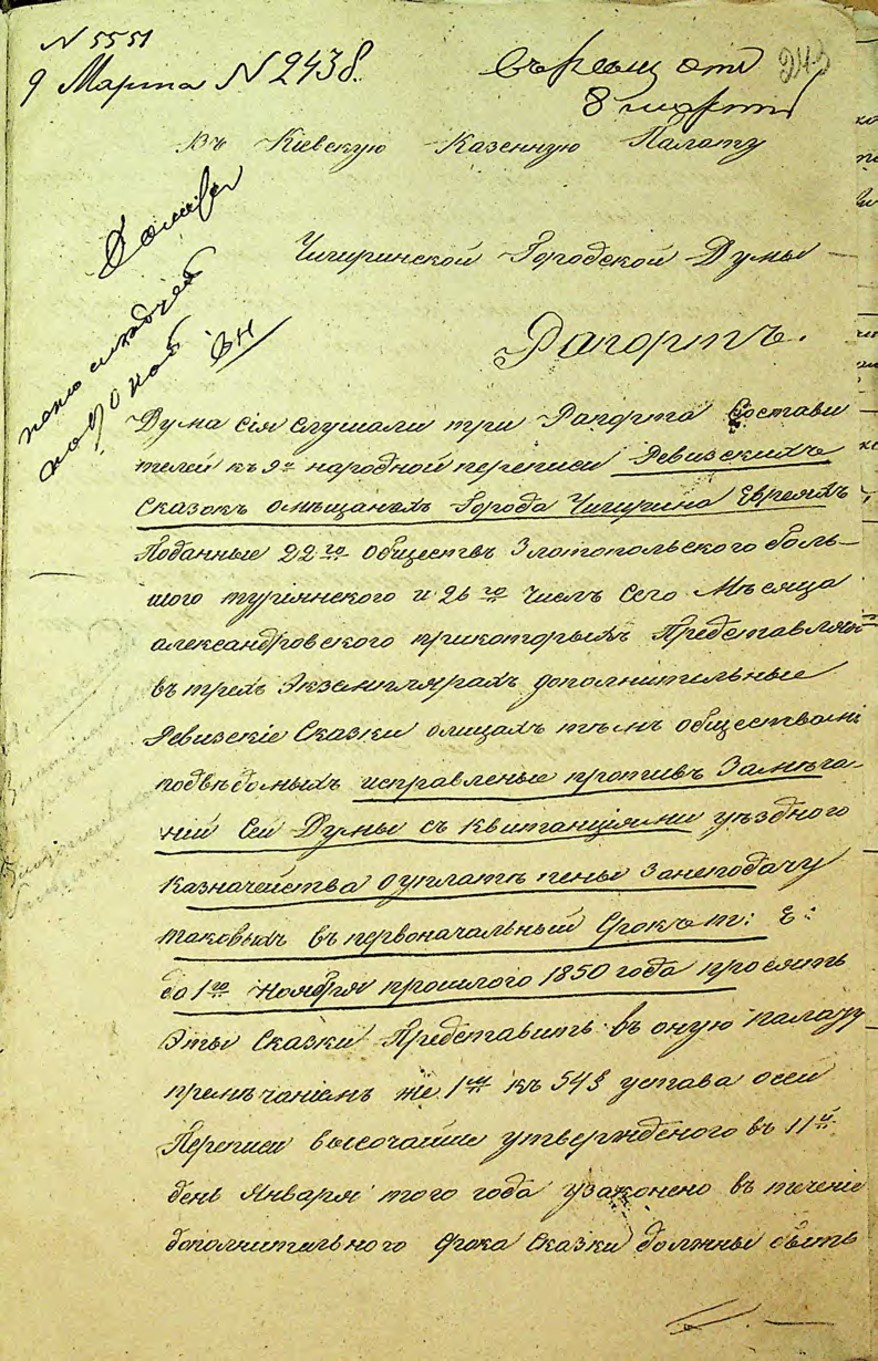 N 5551
9 Марта N 2438.
243
8 марта
Въ Кіевскую Казенную Палату
Чигиринской Городской Думы
Рапортъ.
Дума сія слушали три Рапорта Состави
телей къ 9й народной переписи Ревизскихъ
Сказокъ омѣщанехъ Города Чигирина Евреяхъ
Поданные 22го Обществъ Златопольского боль-
шого туріянского и 26го Числъ Сего Мѣсяца
александровского прикоторыхъ Представляя
въ трехъ Экземплярахъ дополнительные
Ревизскіе Сказки олицахъ тѣмъ обществамъ
подвѣдомыхъ исправленые противъ Замѣча-
ній Сей Думы съ Квитанціями уѣздного
Казначейства Оуплатѣ пеньи Занеподачу
таковыхъ въ первоначальный Срокъ т: Е:
до 1го Ноября прошлого 1850 года просятъ
Эты Сказки Представить въ оную палату
примѣчаніемъ же 1мъ къ 54§ устава осей
Переписи высочайше утвержденого въ 11й
день Января того года узаконено въ теченіе
дополнительного Срока Сказки должны быть